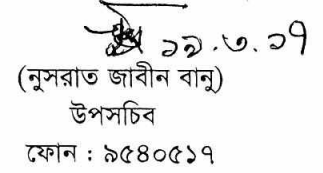 ১৯.৩.১৭
(নুসরাত জাবীন বানু)
উপসচিব
ফোন : ৯৫৪০৫১৭